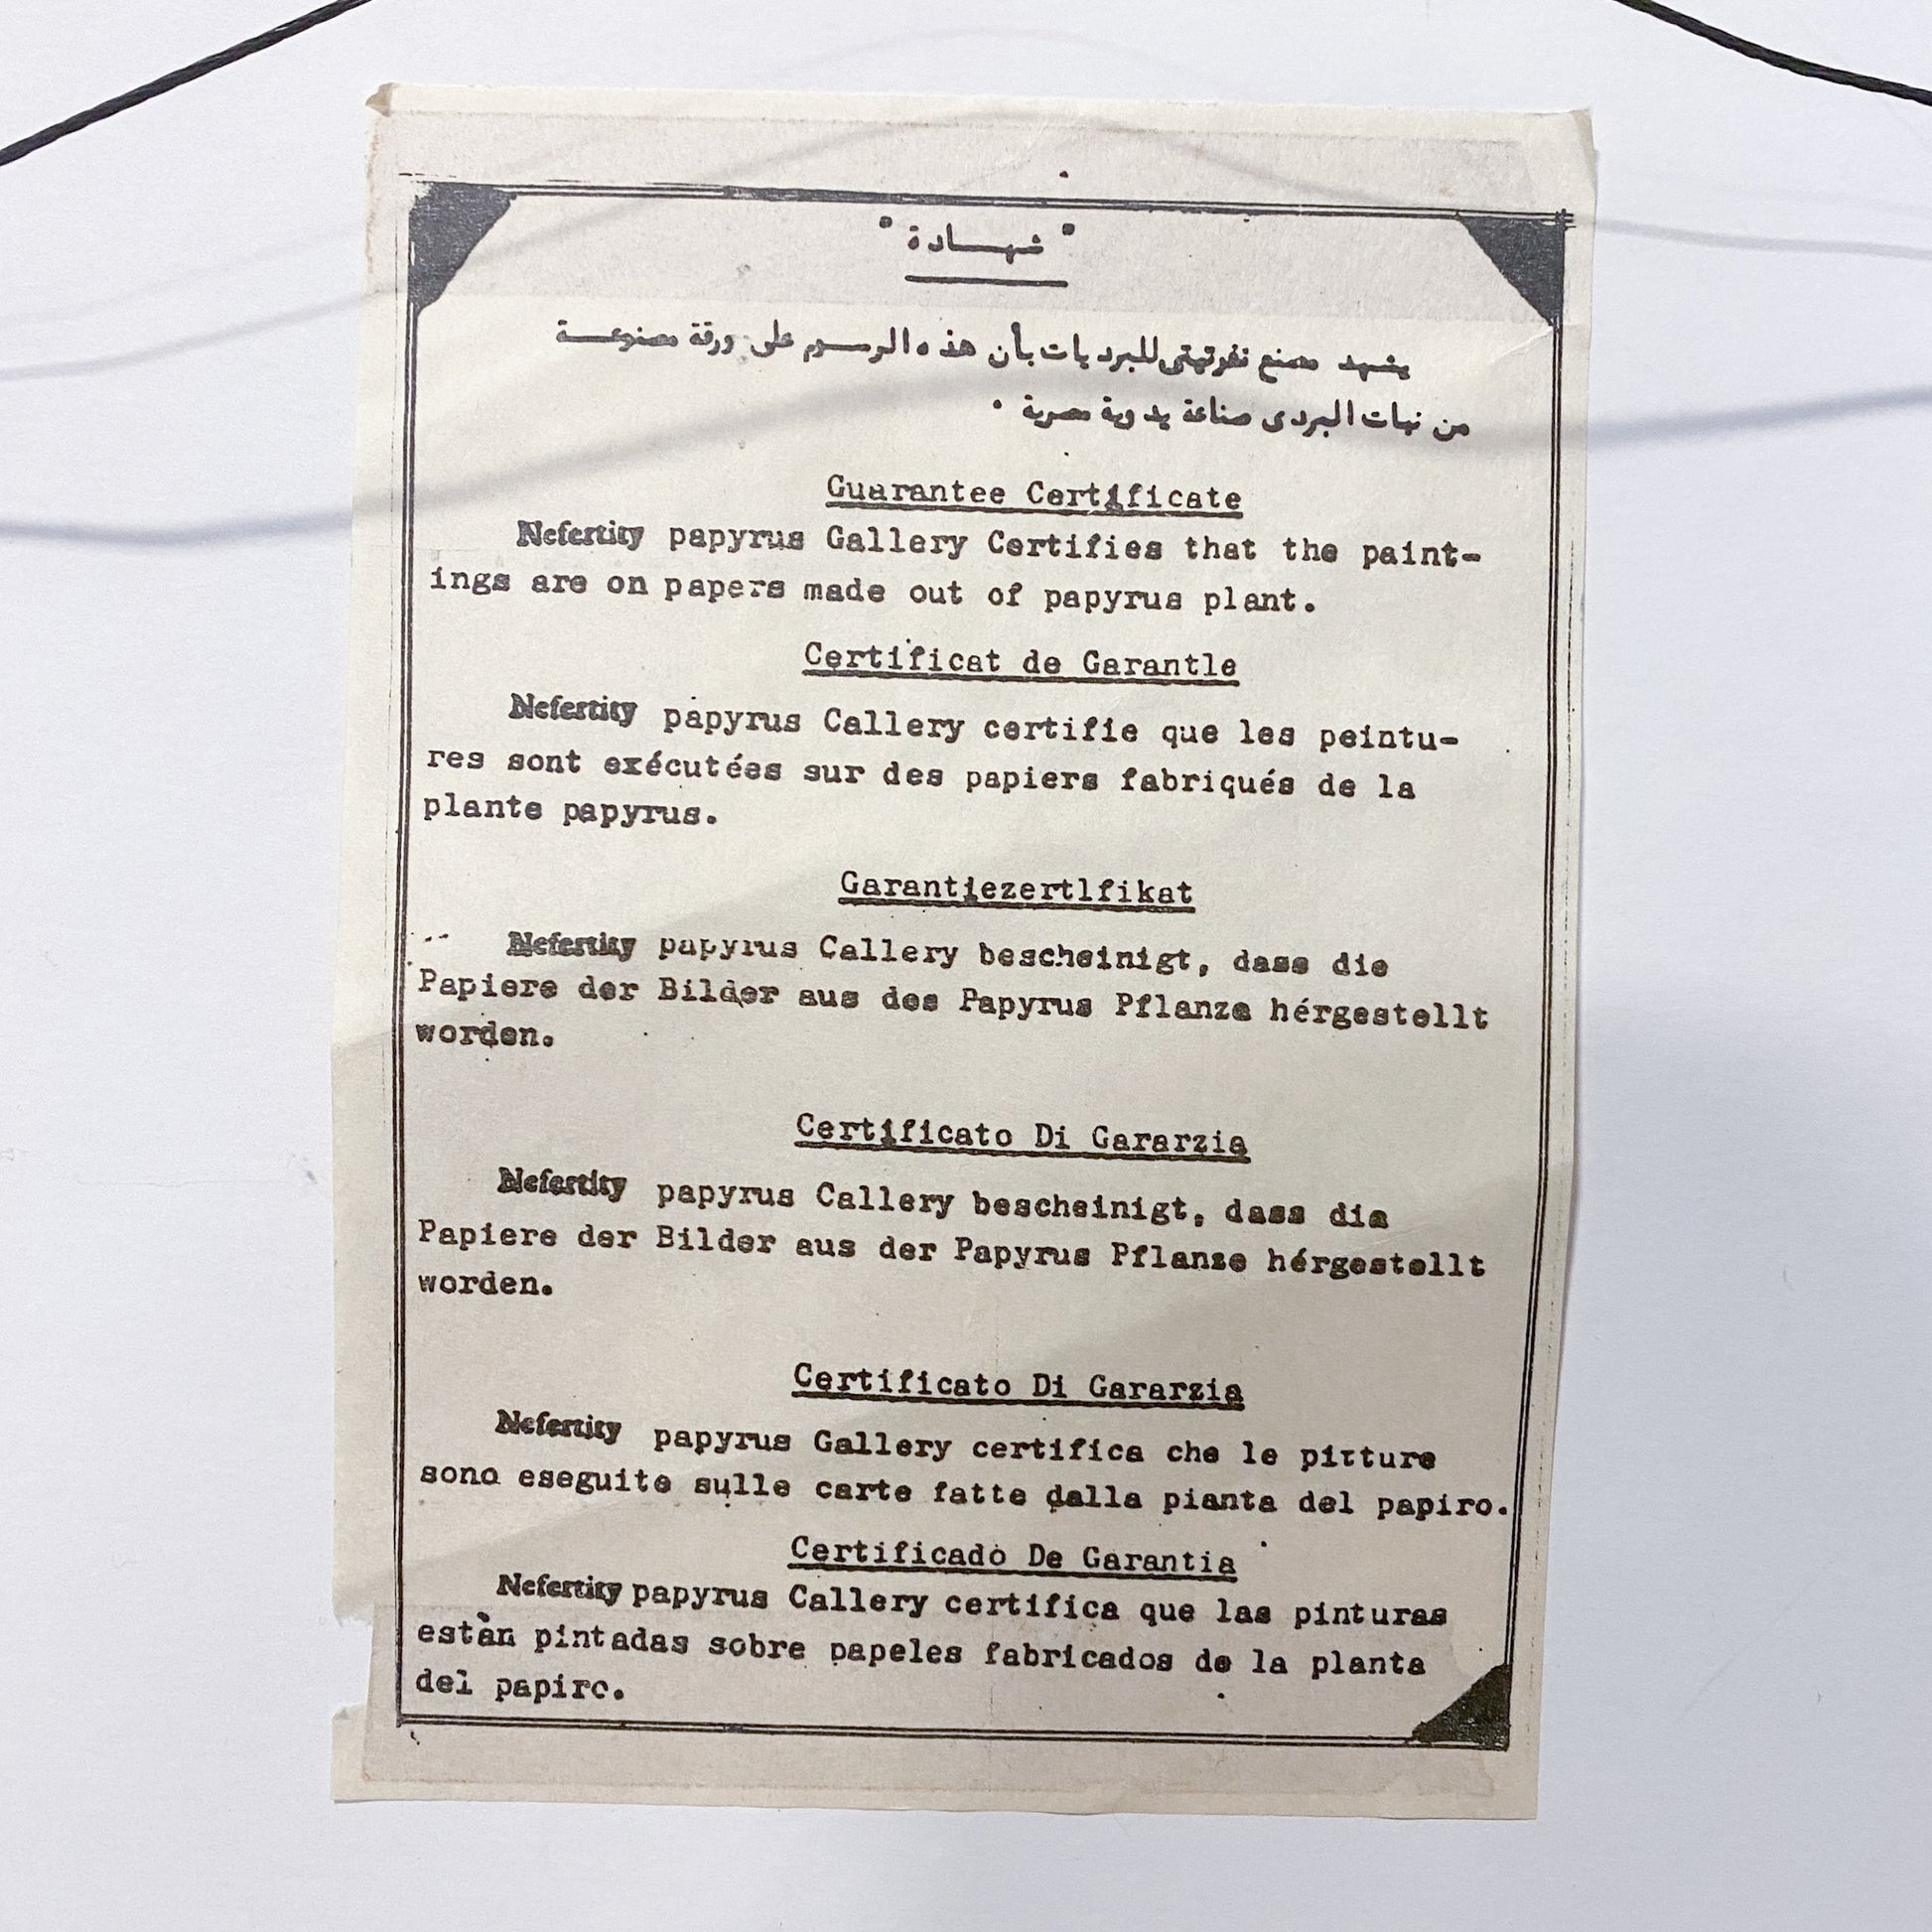 " شهادة "
يشهد مصنع نفرتيتى للبرديات بأن هذه الرسوم على ورقة مصنوعة
من نبات البردى صناعة يدوية مصرية .
Guarantee Certificate
Nefertity papyrus Gallery Certifies that the paint-
ings are on papers made out of papyrus plant.
Certificat de Garantle
Nefertity papyrus Callery certifie que les peintu-
res sont exécutées sur des papiers fabriqués de la
plante papyrus.
Garantiezertlfikat
Nefertity papyrus Callery bescheinigt, dass die
Papiere der Bilder aus des Papyrus Pflanze hérgestellt
worden.
Certificato Di Gararzia
Nefertity papyrus Callery bescheinigt, dass die
Papiere der Bilder aus der Papyrus Pflanze hérgestellt
worden.
Certificato Di Gararzia
Nefertity papyrus Gallery certifica che le pitture
sono eseguite sulle carte fatte dalla pianta del papiro.
Certificado De Garantia
Nefertity papyrus Callery certifica que las pinturas
estàn pintadas sobre papeles fabricados de la planta
del papiro.